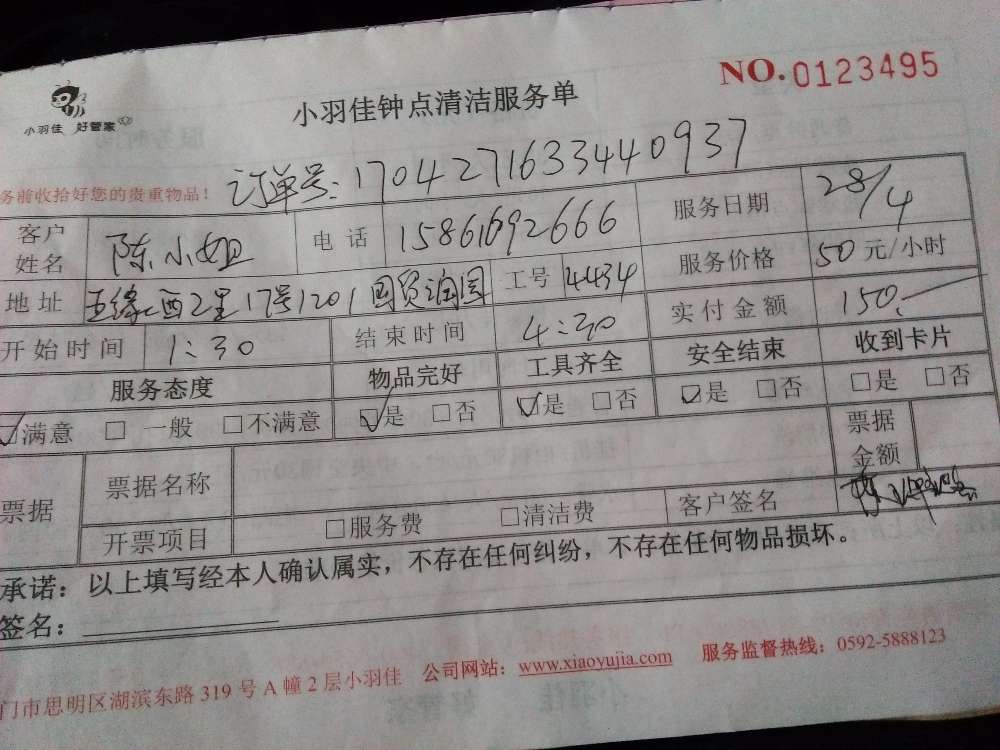 NO.0123495
小羽佳 好管家
小羽佳钟点清洁服务单
订单号:17042716333440937
务前收拾好您的贵重物品!
客户姓名 陈小姐 电话 15861692666 服务日期 28/4
地址 五缘西二里17号1201国贸润园 工号 4434 服务价格 50元/小时
开始时间 1:30 结束时间 4:30 实付金额 150.
服务态度 物品完好 工具齐全 安全结束 收到卡片
☑满意 □一般 □不满意 ☑是 □否 ☑是 □否 ☑是 □否 □是 □否
票据 票据名称 票据金额
开票项目 □服务费 □清洁费 客户签名
承诺:以上填写经本人确认属实,不存在任何纠纷,不存在任何物品损坏。
签名:
门市思明区湖滨东路319号A幢2层小羽佳 公司网站:www.xiaoyujia.com 服务监督热线:0592-5888123